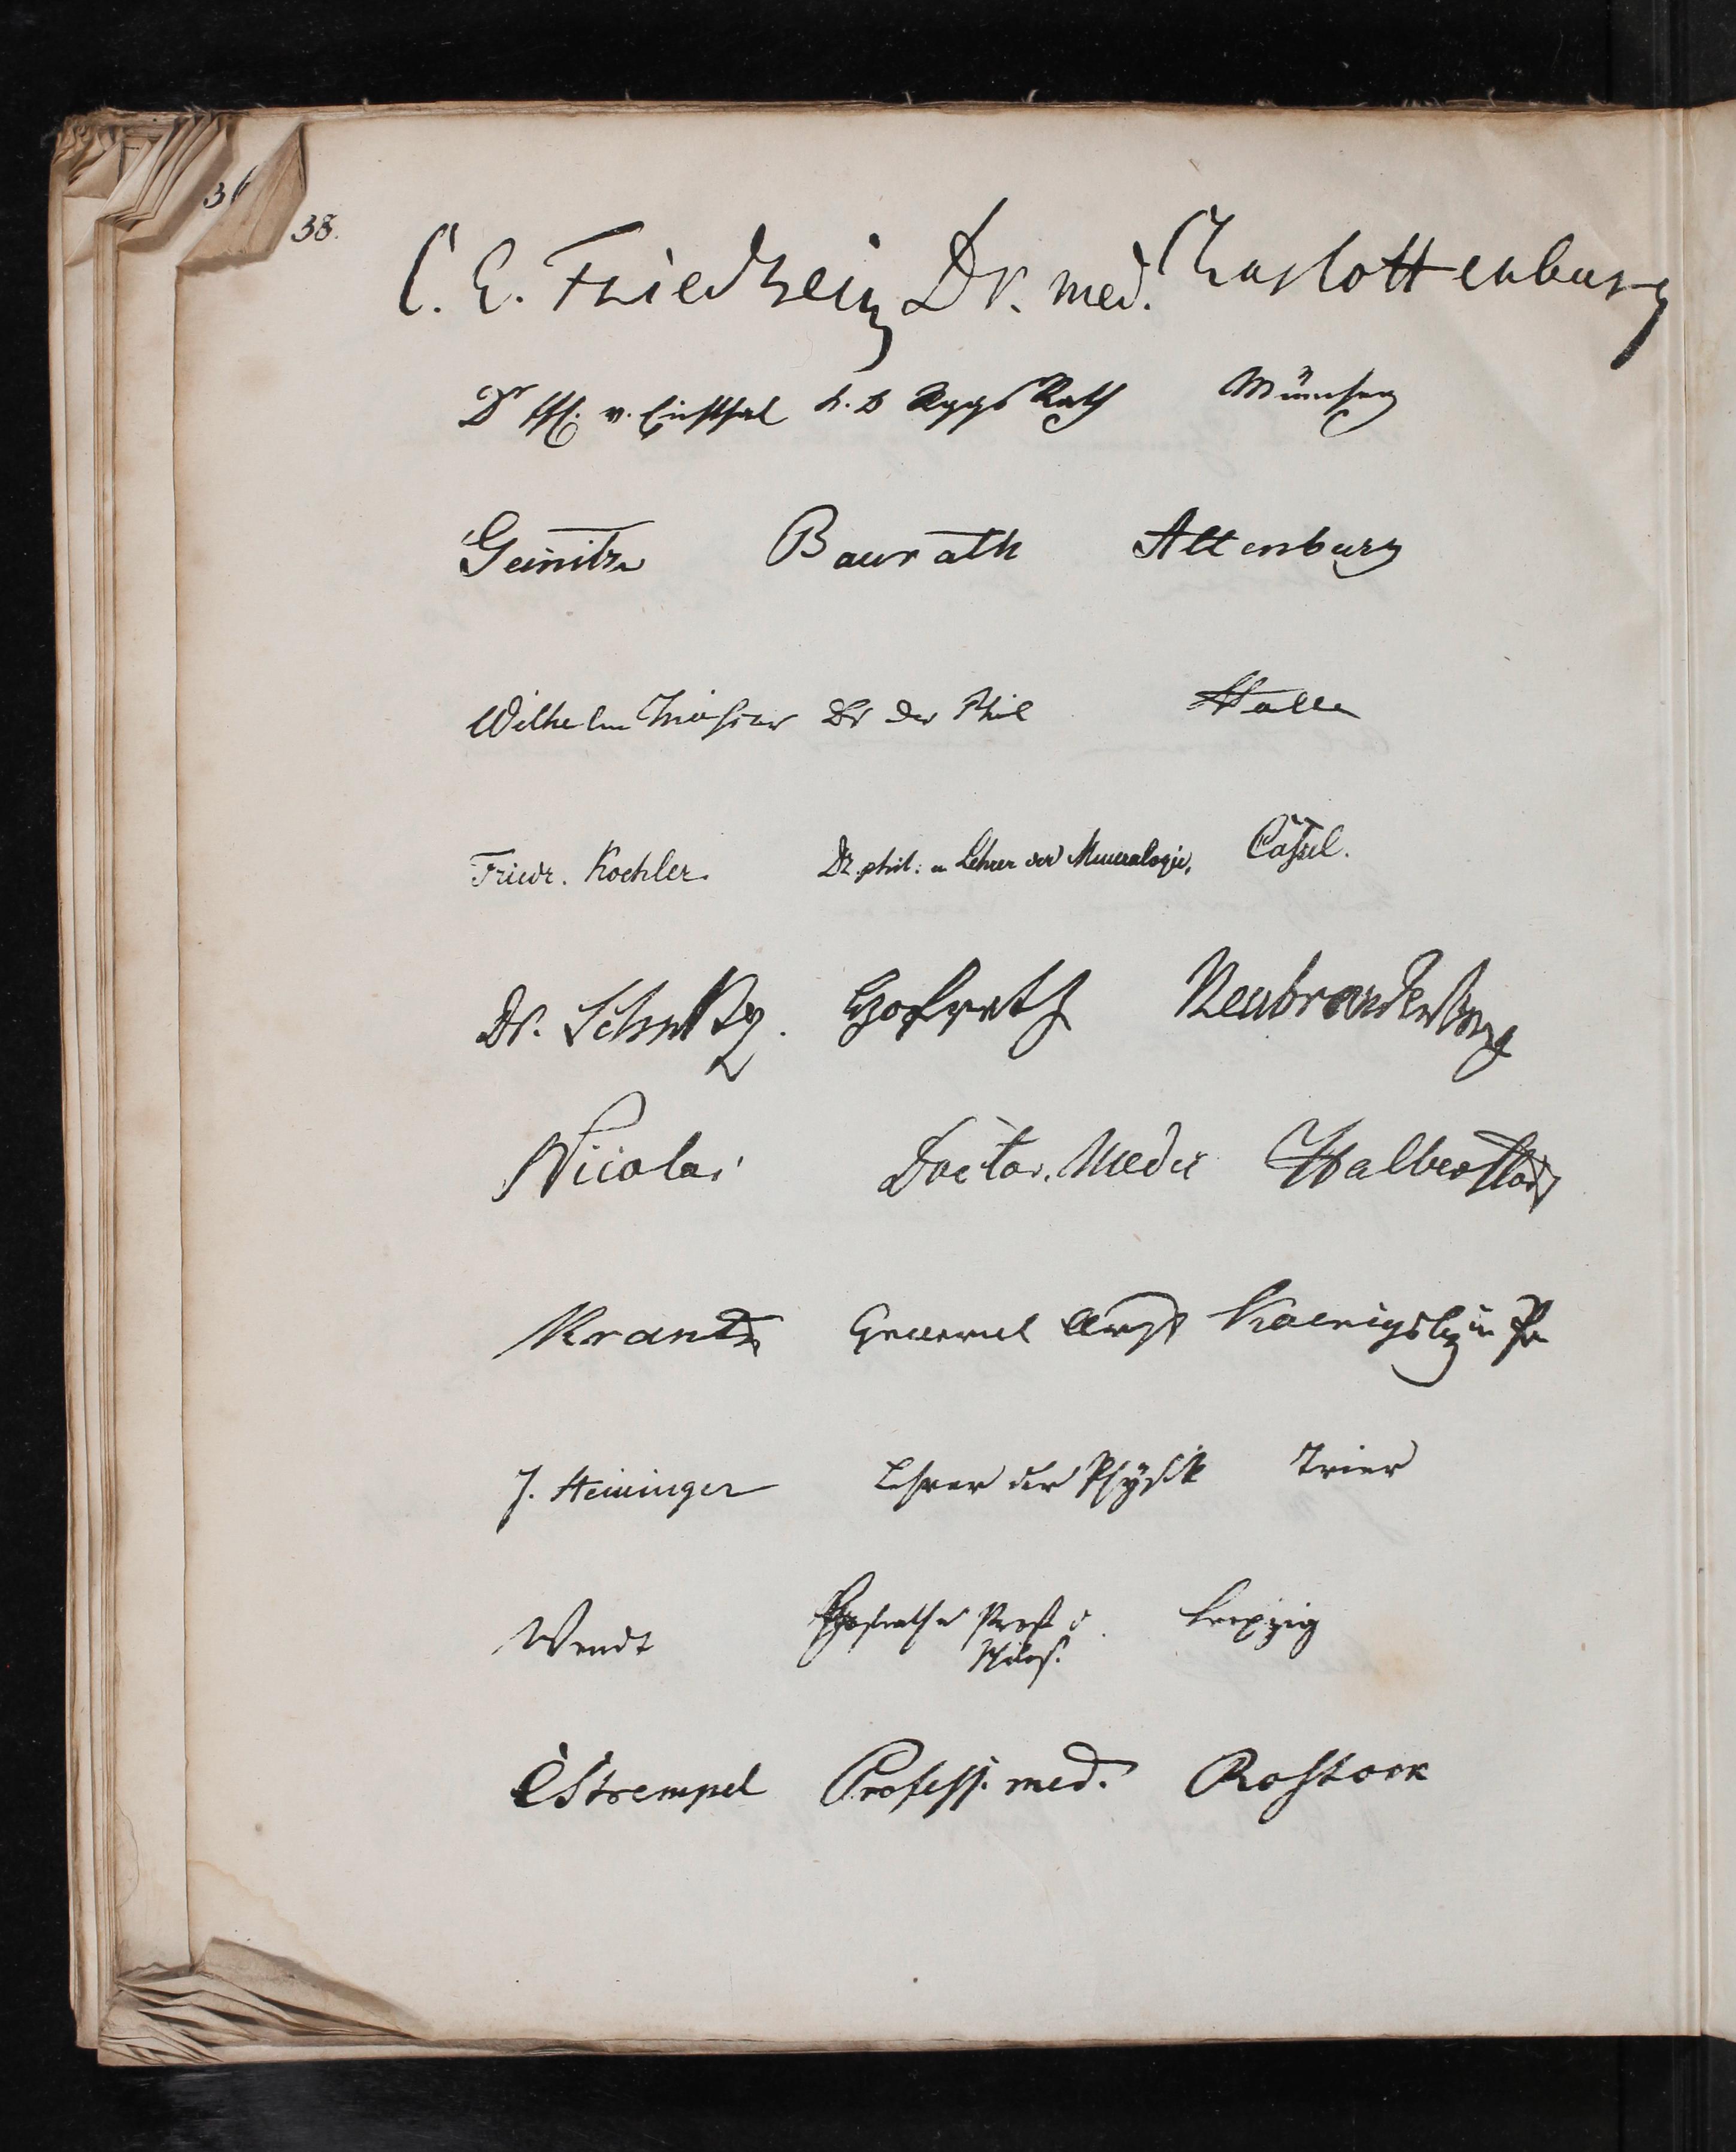 38.
C. E. Friedheim Dr. med. Charlottenburg
Dr v. Eichthal k. b Rggs Rath München
Geinitz Baurath Altenburg
Wilhelm Dr der Phil Halle
Friedr. Koehler. Dr. phil: u Lehrer der Mineralogie, Cassel.
Dr. Schultz. Hofrath Neubrandenburg
Nicolai Doctor. Medic Halberstadt
Krantz General Arzt Koenigsbg in Pr
J. Steininger Lehrer der Physik Trier
Wendt Hofrath u Prof d. Leipzig
Philos.
C Strempel Profess. med. Rostock